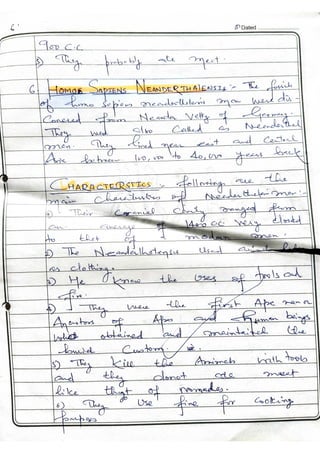 Dated
900 C.C
5) They probably ate meat.
6. HOMO SAPIENS NEANDERTHALENSIS :- The fossils
of homo sapiens neanderthalens man were dis-
covered from Neander Velly of Germany.
They were also called as Neanderthal
man. They lived near east and central
Asia between 1,00,00 to 40,000 years back
CHARACTERSTICS :- following are the
main characteristics of Neanderthal man:-
1) Their Cranial cavity ranged from
an average of 1400 CC very closed
to that of modern man.
2) The Neanderthalogens used
as clothing.
3) He knew the uses of tools and
fire.
4) They were the first Ape man
Ancestors of Apes and human beings
who obtained and maintained the
buried Custom.
5) They kill the Animals with tools
and they donot ate meat
like that of nomades.
6) They use fire for cooking
purpose